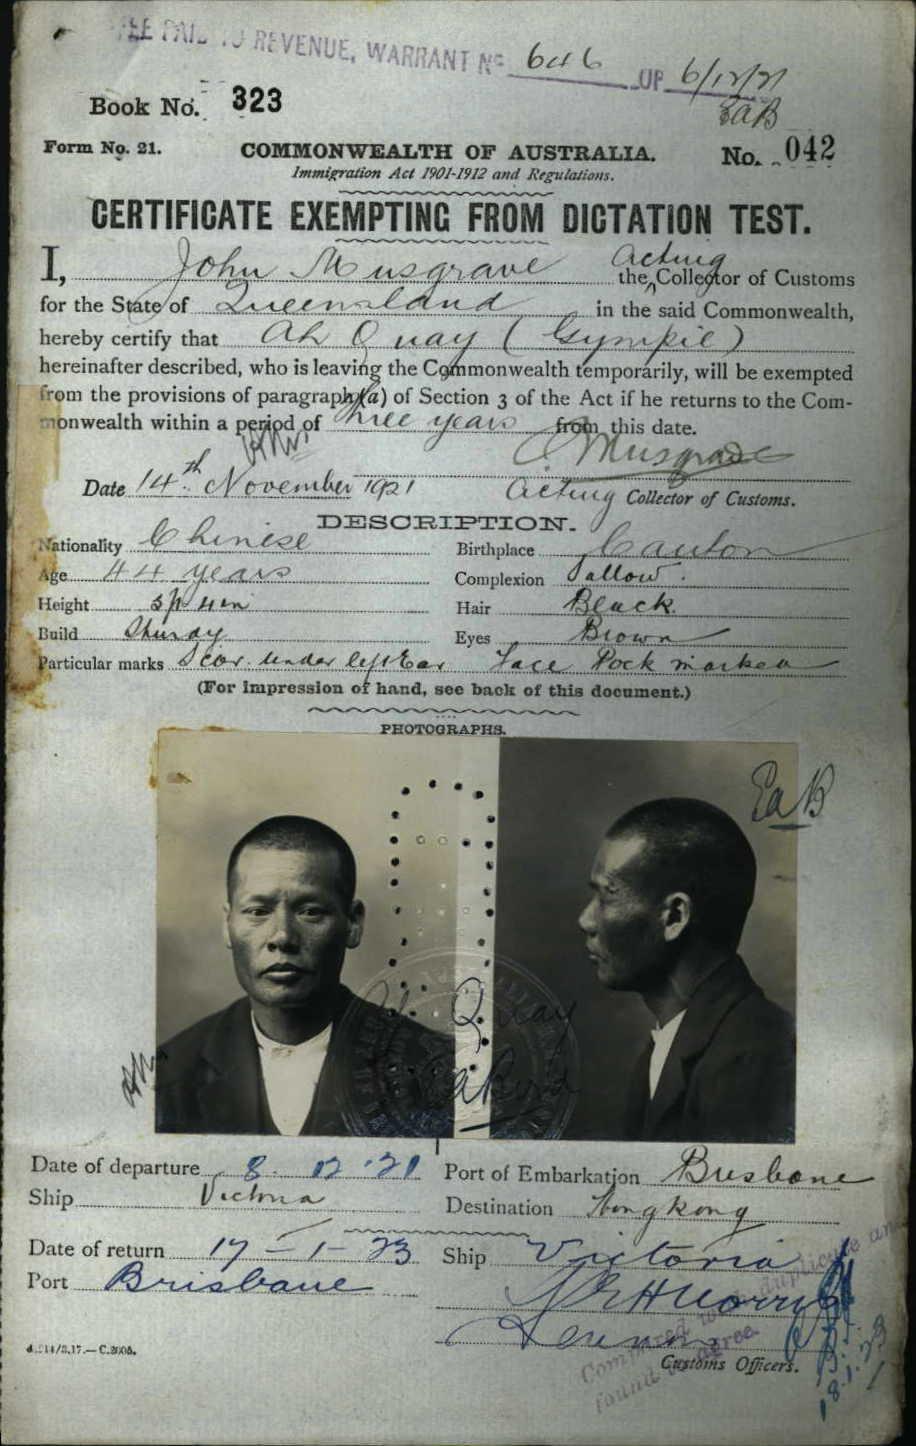 FEE PAID TO REVENUE, WARRANT No 646 OF 6/12/21
EaB
Book No. 323
Form No. 21. COMMONWEALTH OF AUSTRALIA. No. 042
Immigration Act 1901-1912 and Regulations.
CERTIFICATE EXEMPTING FROM DICTATION TEST.
I, John Musgrave the Acting Collector of Customs
for the State of Queensland in the said Commonwealth,
hereby certify that Ah Quay (Gympie)
hereinafter described, who is leaving the Commonwealth temporarily, will be exempted
from the provisions of paragraph (a) of Section 3 of the Act if he returns to the Com-
monwealth within a period of three years from this date.
Musgrave
Date 14th November 1921 Acting Collector of Customs.
DESCRIPTION.
Nationality Chinese Birthplace Canton
Age 44 years Complexion Sallow.
Height 5ft 4in Hair Black.
Build Sturdy Eyes Brown
Particular marks Scar under left Ear Face Pock marked
(For impression of hand, see back of this document.)
PHOTOGRAPHS.
EaB
Ah Quay
Date of departure 8.12.21 Port of Embarkation Brisbane
Ship Victoria Destination Hongkong
Date of return 17-1-23 Ship Victoria
Port Brisbane
Compared with duplicate and
found to agree.
18.1.23
Customs Officers.